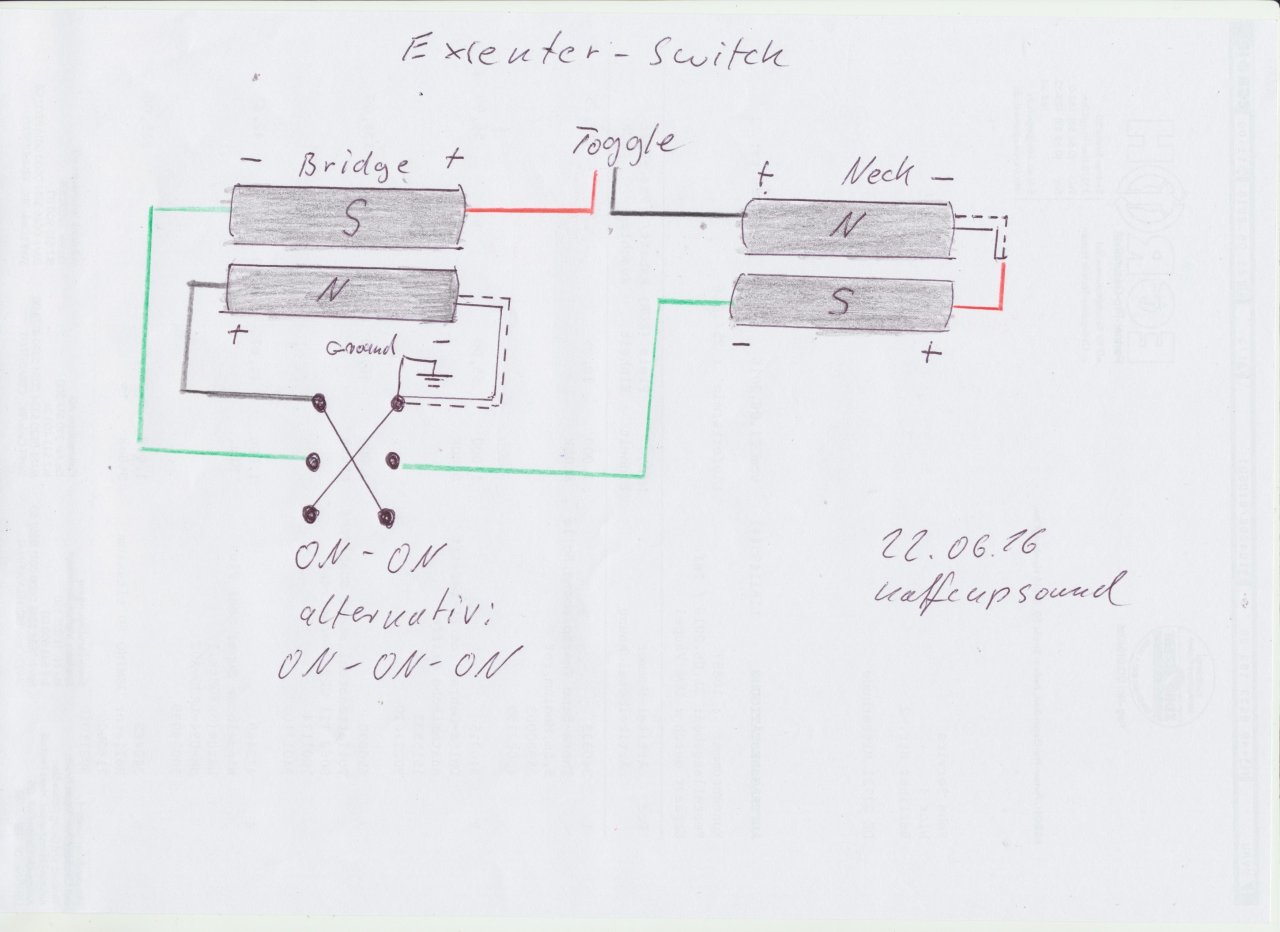 Exenter-Switch
Toggle
- Bridge +
+ Neck -
S
N
N
S
+ -
- +
Ground
ON-ON
alternativ:
ON-ON-ON
22.06.16